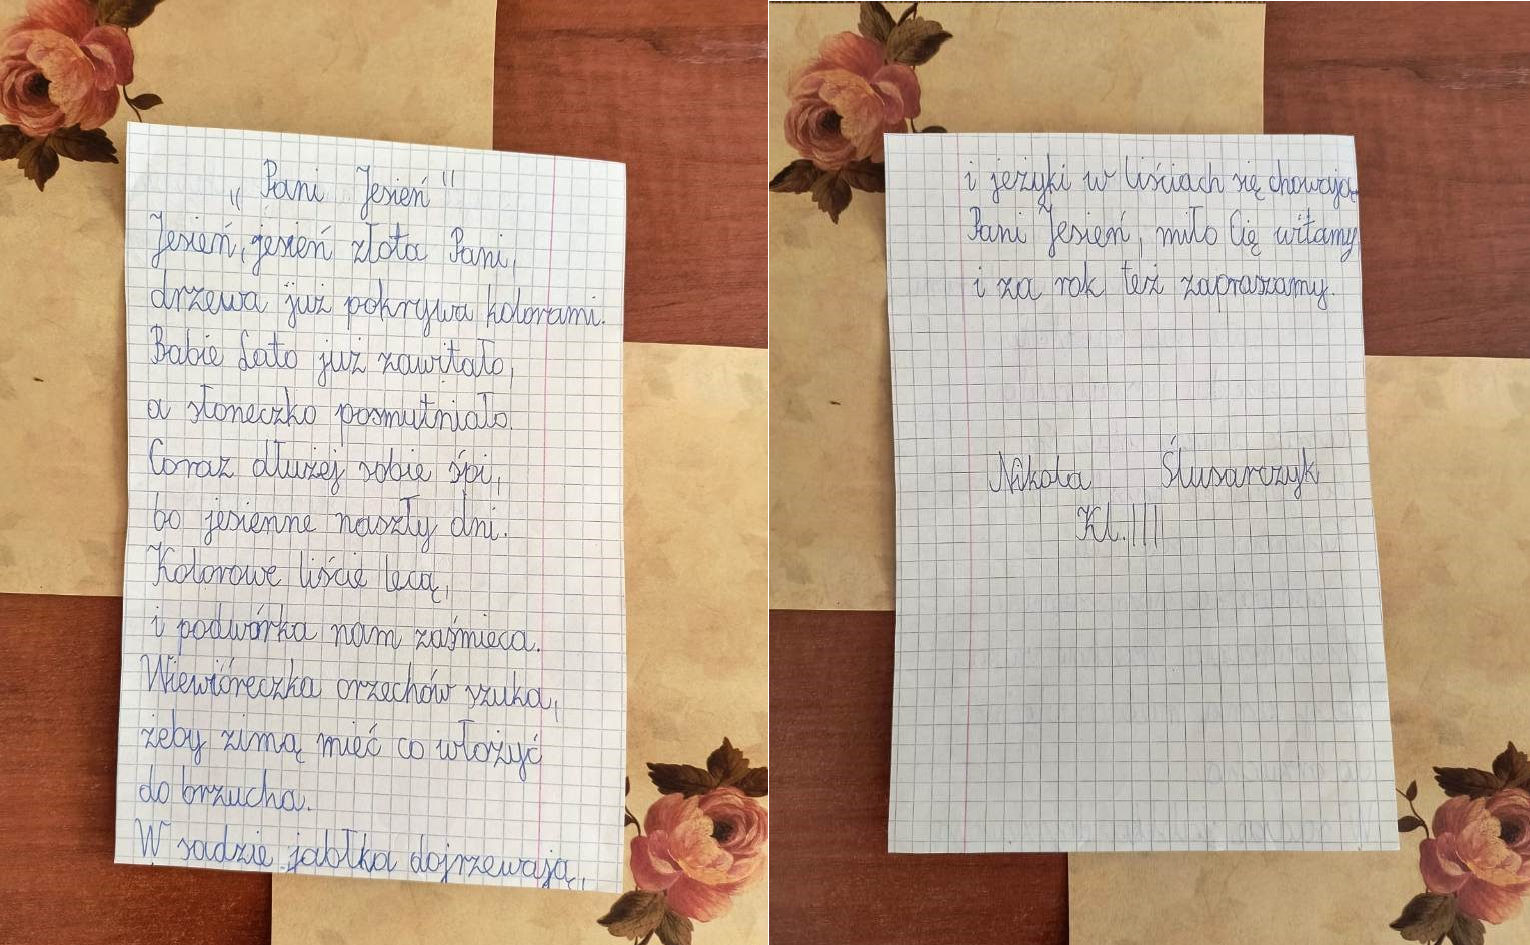 „Pani Jesień"
Jesień, jesień złota Pani,
drzewa już pokrywa kolorami.
Babie Lato już zawitało,
a słoneczko posmutniało.
Coraz dłużej sobie śpi,
bo jesienne naszły dni.
Kolorowe liście lecą,
i podwórka nam zaśmieca.
Wiewióreczka orzechów szuka,
żeby zimą mieć co włożyć
do brzucha.
W sadzie jabłka dojrzewają,
i jeżyki w liściach się chowają
Pani Jesień, miło Cię witamy
i za rok też zapraszamy.
Nikola Ślusarczyk
Kl. III